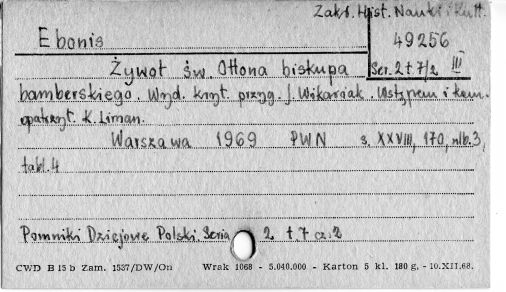 Zakł. Hist. Nauki i Kult.
Ebonis
49256
Żywot św. Ottona biskupa
Ser. 2 t. 7/2 III
bamberskiego. Wyd. kryt. przyg. J. Wikarjak. Wstępem i kom.
opatrzył. K. Liman.
Warszawa 1969 PWN s. XXVIII, 170, nlb. 3,
tabl. 4
Pomniki Dziejowe Polski. Seria 2 t. 7 cz. 2
CWD B 15 b Zam. 1537/DW/On Wrak 1068 - 5.040.000 - Karton 5 kl. 180 g. - 10.XII.68.